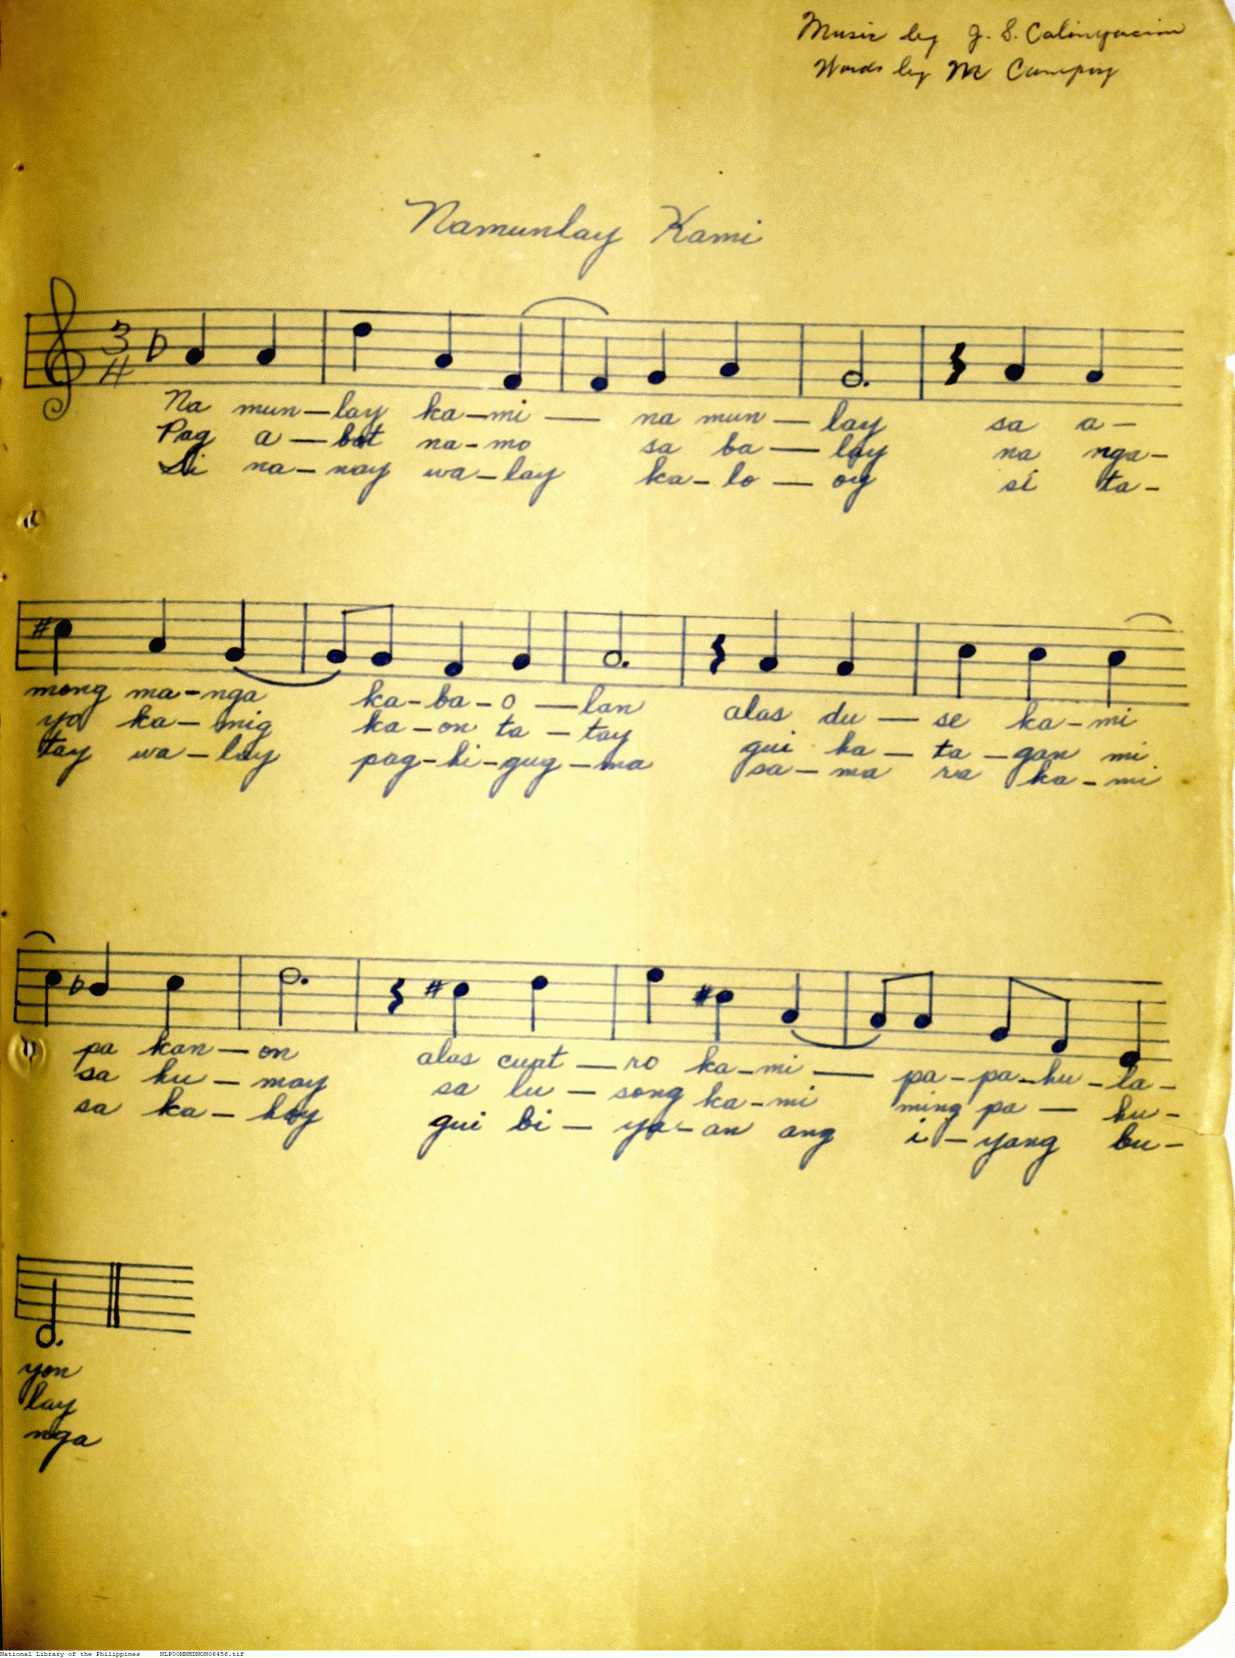 Music by J. S. Calinyacim
Words by M Campoy
Namunlay Kami
3
Na mun-lay ka-mi — na mun-lay sa a-
Pag a-bot na-mo sa ba-lay na nga-
Si na-nay wa-lay ka-lo-oy si ta-
mong ma-nga ka-ba-o-lan alas du-se ka-mi
yo ka-mig ka-on ta-tay gui ha-ta-gan mi
tay wa-lay pag-hi-gug-ma sa-ma ra ka-mi
pa kan-on alas cuat-ro ka-mi — pa-pa-hu-la-
sa hu-may sa lu-song ka-mi ming pa-hu-
sa ka-hoy gui bi-ya-an ang i-yang bu-
yon
lay
nga
National Library of the Philippines